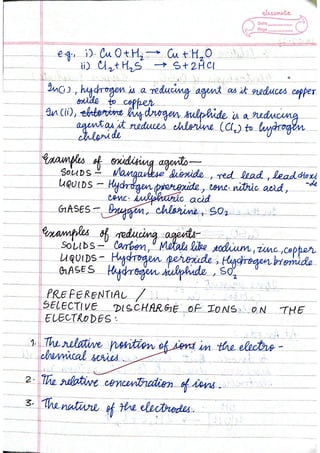 classmate
Date
Page
e.g., i) CuO + H₂ → Cu + H₂O
ii) Cl₂ + H₂S → S + 2HCl
In (i), hydrogen is a reducing agent as it reduces copper
oxide to copper
In (ii), chlorine hydrogen sulphide is a reducing
agent as it reduces chlorine (Cl₂) to hydrogen
chloride
Examples of oxidising agents—
SOLIDS – Manganese dioxide, red lead, lead dioxi
-de
LIQUIDS – Hydrogen peroxide, conc. nitric acid,
conc. sulphuric acid
GASES – Oxygen, chlorine, SO₂
Examples of reducing agents-
SOLIDS – Carbon, Metals like sodium, zinc, copper
LIQUIDS – Hydrogen peroxide, Hydrogen bromide
GASES Hydrogen sulphide, SO₂
PREFERENTIAL /
SELECTIVE DISCHARGE OF IONS ON THE
ELECTRODES:
1. The relative position of ions in the electro-
chemical series.
2. The relative concentration of ions.
3. The nature of the electrodes.